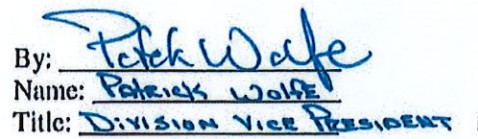 By: Patrick Wolfe
Name: Patrick Wolfe
Title: Division Vice President